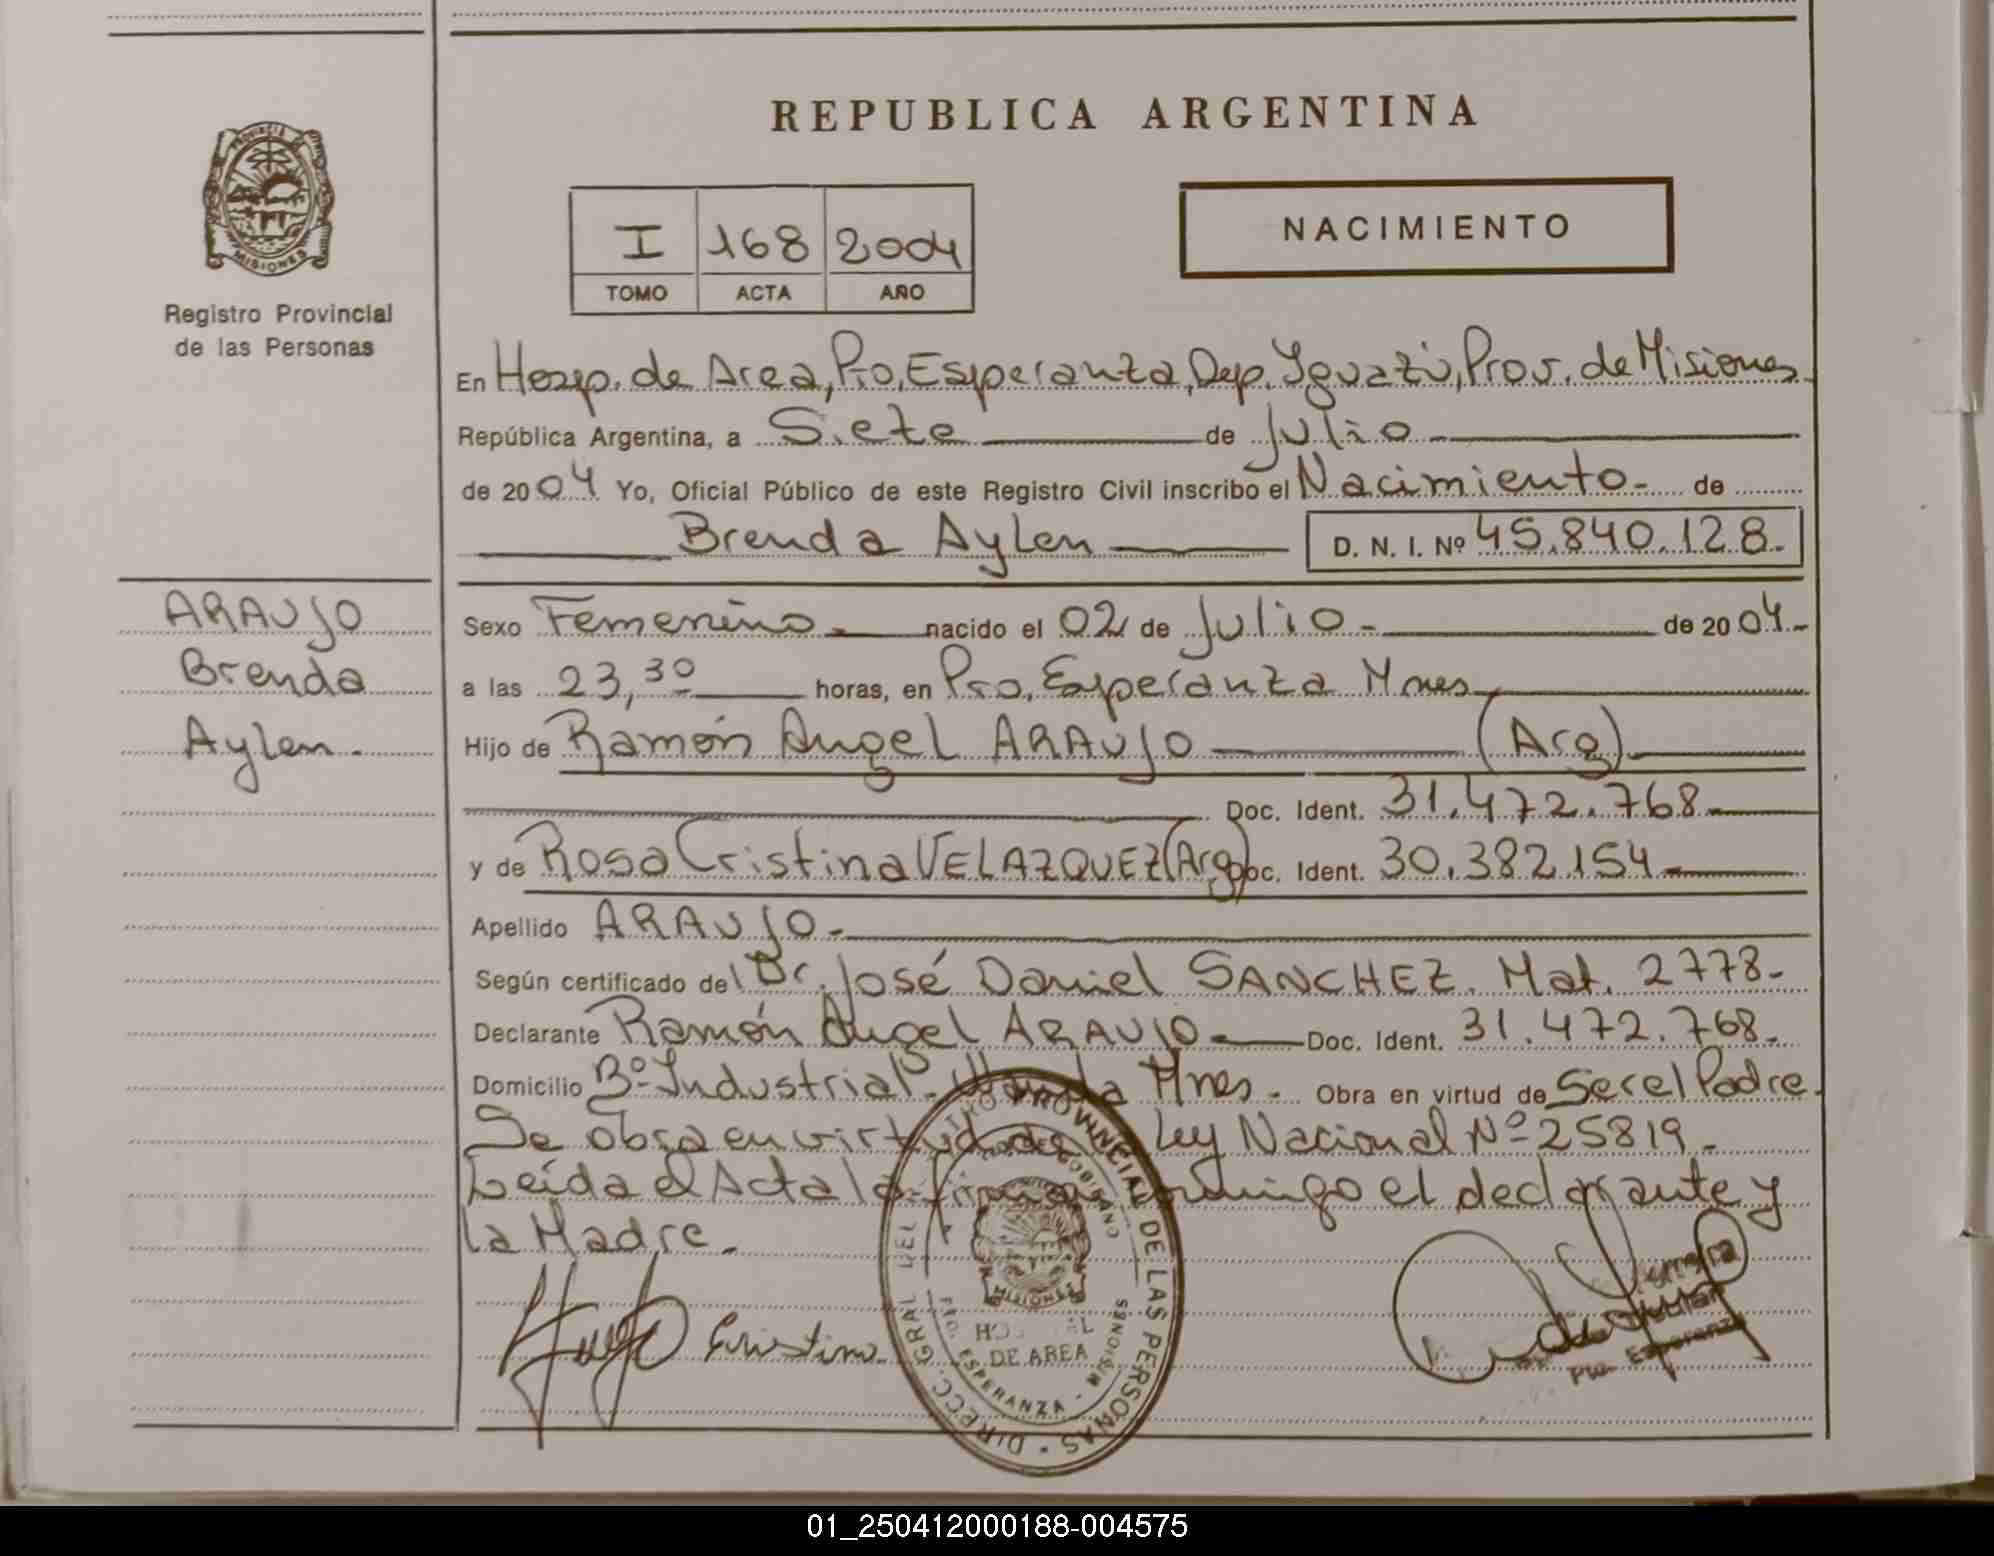 REPUBLICA ARGENTINA
PROVINCIA
MISIONES
Registro Provincial
de las Personas
I 168 2004
TOMO ACTA AÑO
NACIMIENTO
En Hosp. de Area, Pto. Esperanza, Dep. Iguazú, Prov. de Misiones
República Argentina, a Siete de Julio
de 2004 Yo, Oficial Público de este Registro Civil inscribo el Nacimiento de
Brenda Aylen D. N. I. Nº 45.840.128
ARAUJO
Brenda
Aylen
Sexo Femenino nacido el 02 de Julio de 2004
a las 23,30 horas, en Pto. Esperanza Mnes
Hijo de Ramón Angel ARAUJO (Arg)
Doc. Ident. 31.472.768
y de Rosa Cristina VELAZQUEZ (Arg) Doc. Ident. 30.382.154
Apellido ARAUJO
Según certificado del Dr. José Daniel SANCHEZ. Mat. 2778
Declarante Ramón Angel ARAUJO Doc. Ident. 31.472.768
Domicilio Bº Industrial Mnes. Obra en virtud de Ser el Padre
Se obra en virtud de Ley Nacional Nº 25819
Leída el Acta la firman conmigo el declarante y
la Madre.
Cristina
DIRECC. GRAL DEL REGISTRO PROVINCIAL DE LAS PERSONAS
MISIONES
HOSPITAL
DE AREA
ESPERANZA - MISIONES
Pto. Esperanza
01_250412000188-004575